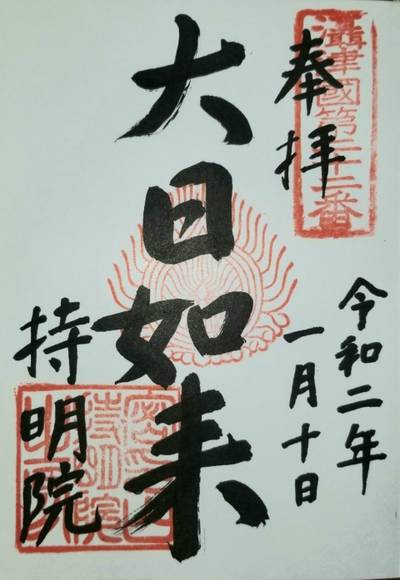 攝津國第二十二番
奉拝
令和二年
一月十日
大日如来
持明院